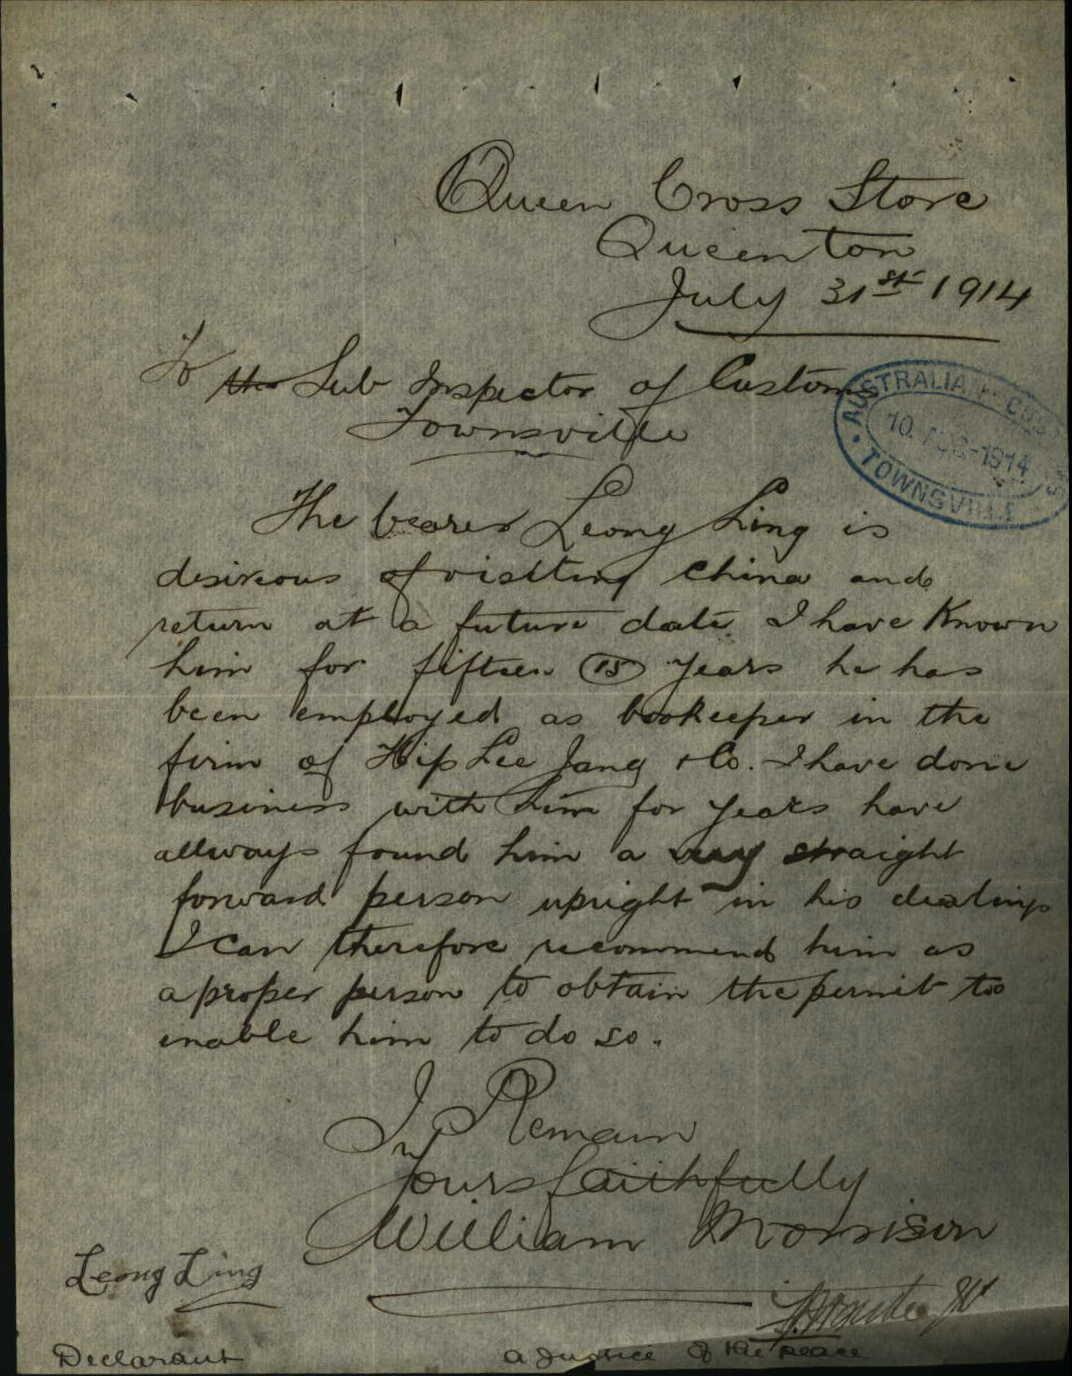 Queen Cross Store
Queenton
July 31st 1914
To the Sub Inspector of Customs
Townsville
AUSTRALIA CUSTOMS
10 AUG 1914
TOWNSVILLE
The bearer Leong Ling is
desireous of visiting China and
return at a future date I have Known
him for fifteen 15 years he has
been employed as bookeeper in the
firm of Hip Lee Jang & Co. I have done
business with him for years have
allways found him a very straight
forward person upright in his dealings
I can therefore recommend him as
a proper person to obtain the permit too
enable him to do so.
I Remain
Yours faithfully
William Morrison
Leong Ling
JP
Declarant
a Justice of the peace